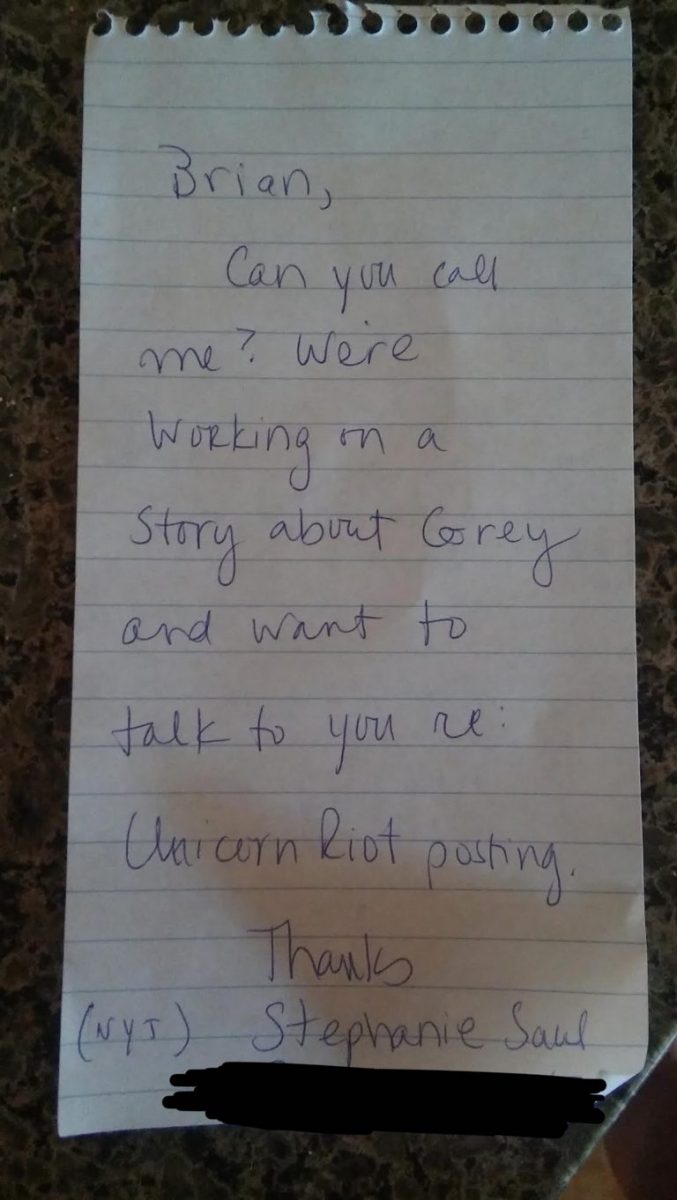 Brian,
Can you call
me? We're
Working on a
Story about Grey
and want to
talk to you re:
Unicorn Riot posting.
Thanks
(NYT) Stephanie Saul